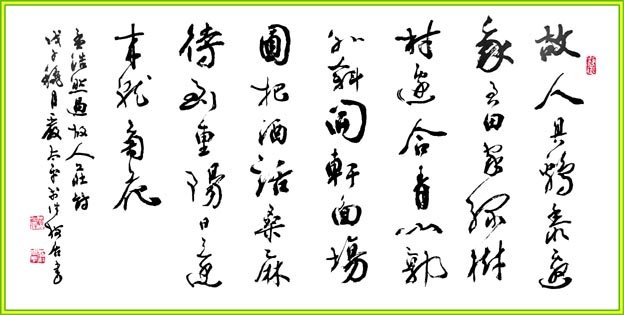 故人具鷄黍邀
我至田家緑樹
村邊合青山郭
外斜開軒面場
圃把酒話桑麻
待到重陽日還
來就菊花
孟浩然過故人莊詩
戊子秋月